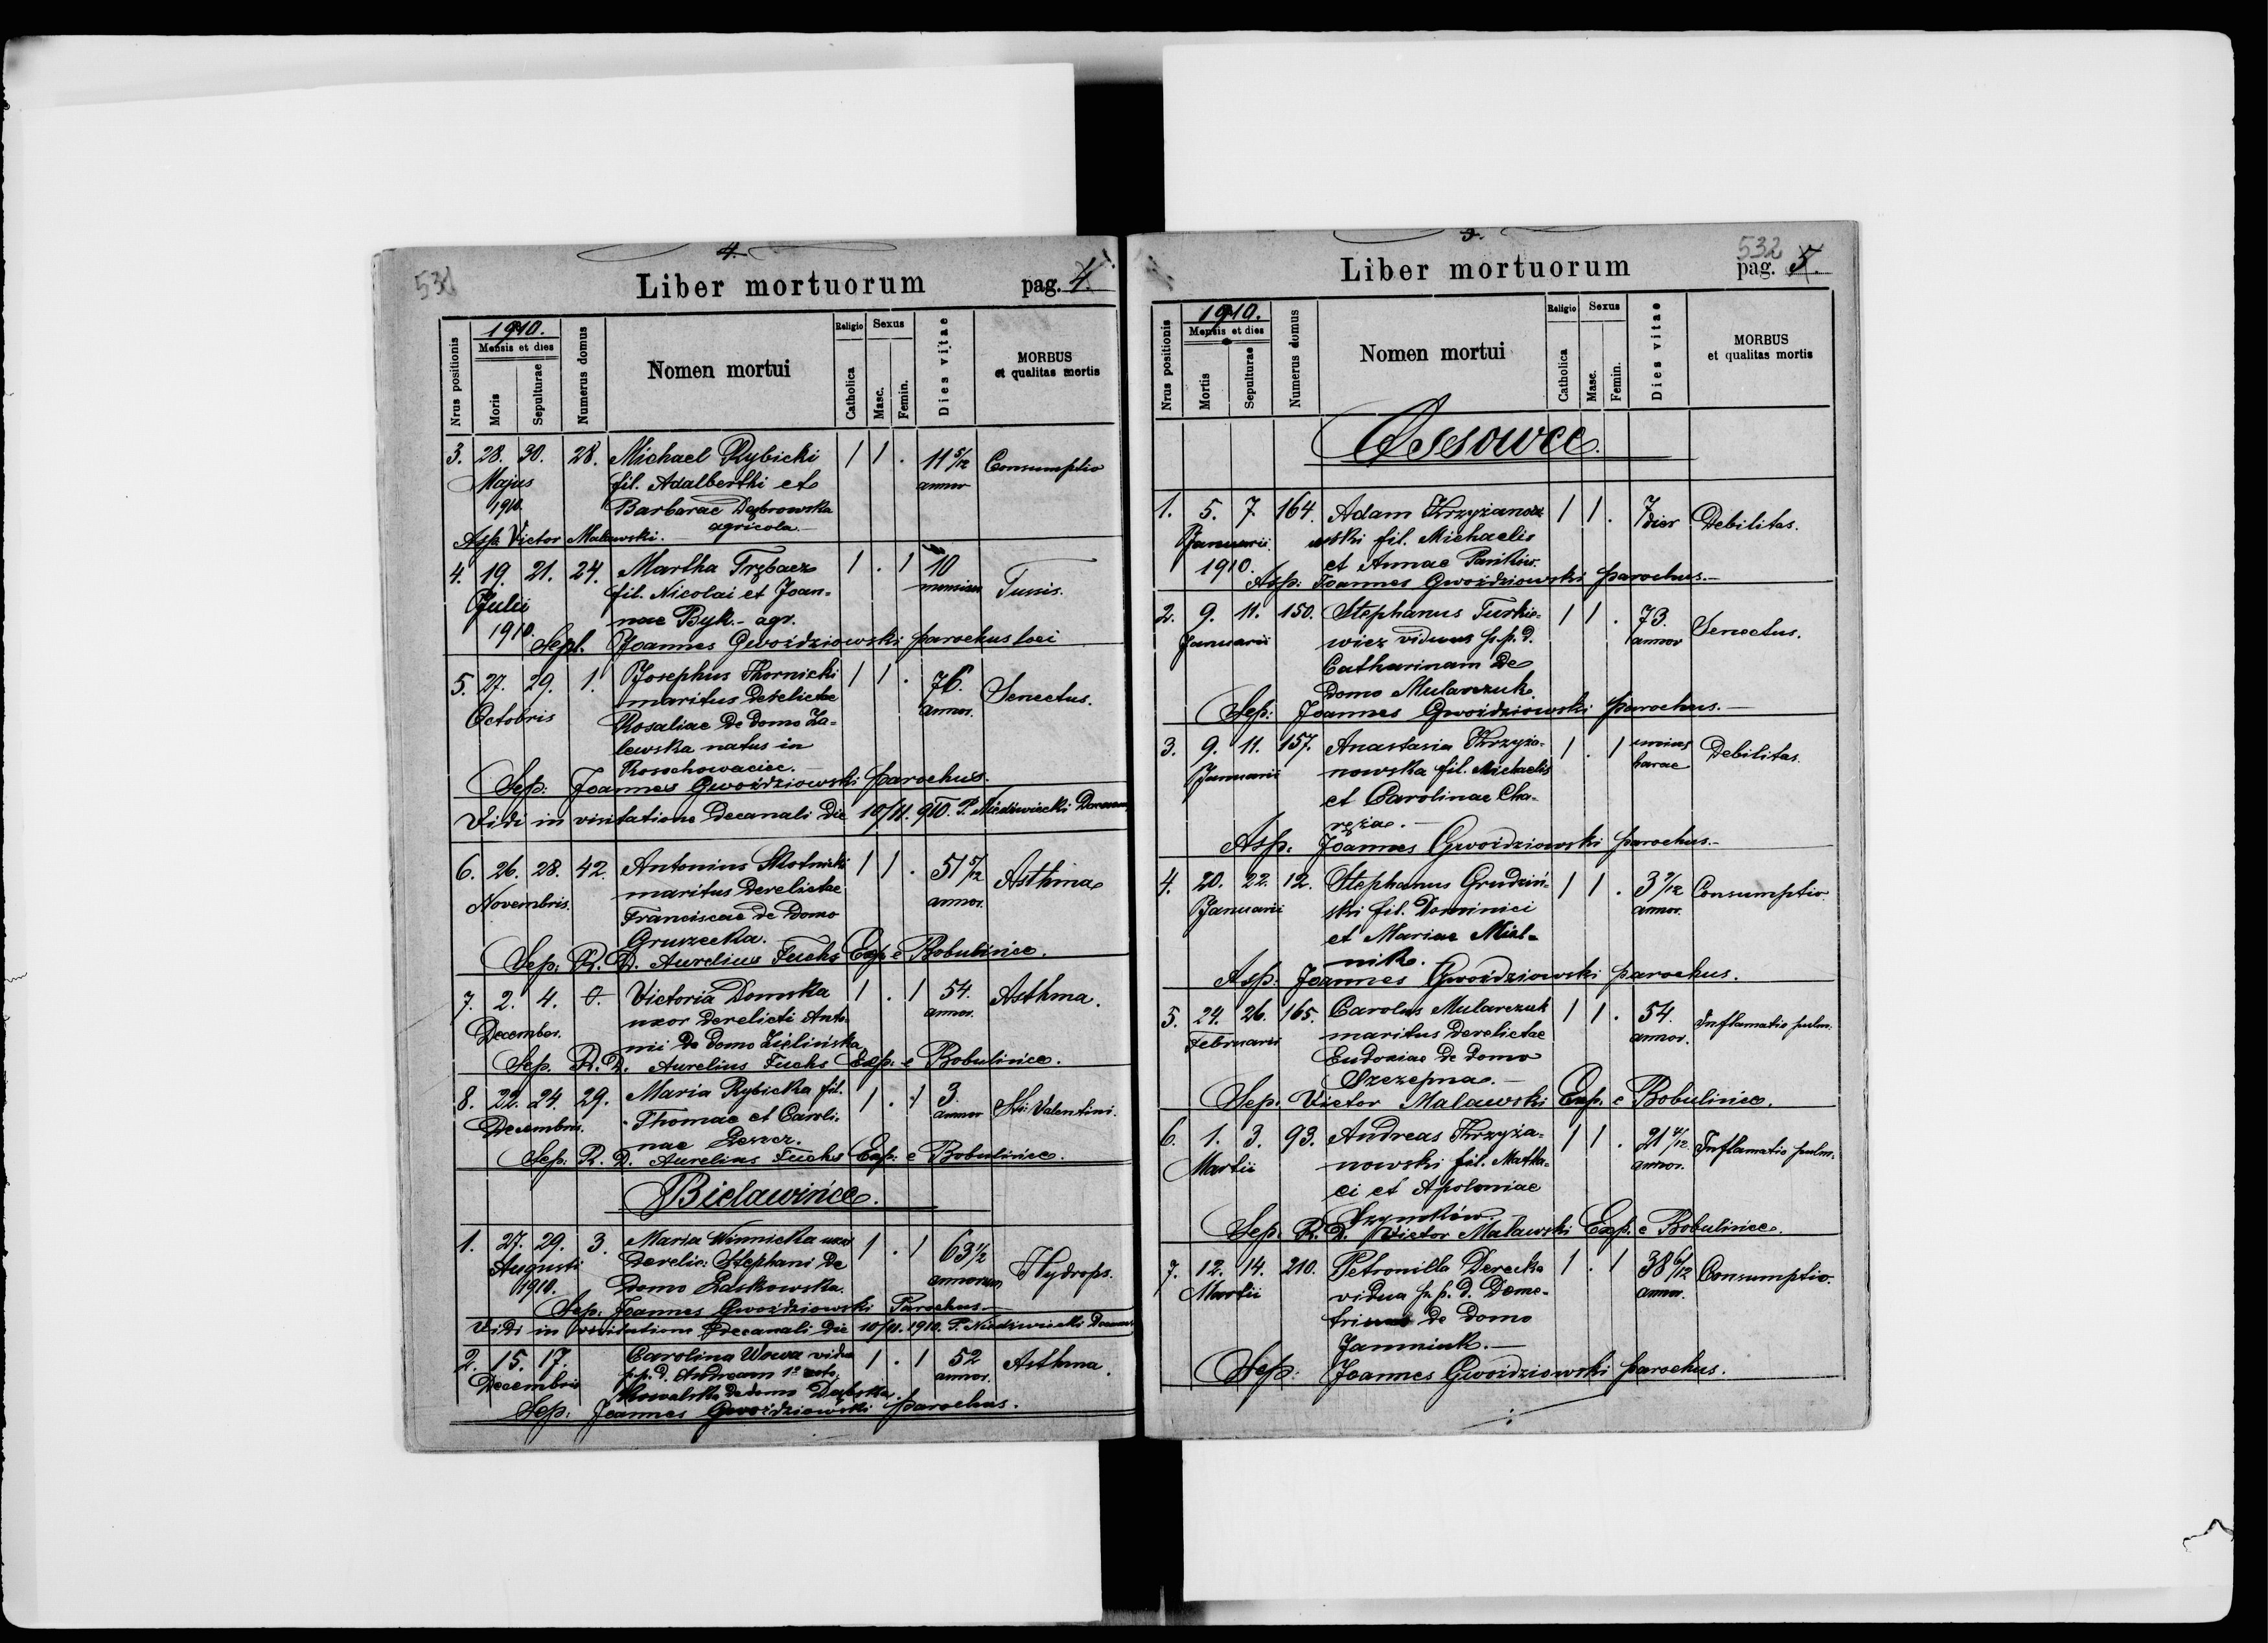 4.
531
Liber mortuorum pag. 4.
Nrus positionis
1910.
Mensis et dies
Moris
Sepulturae
Numerus domus
Nomen mortui
Religio
Catholica
Sexus
Masc.
Femin.
Dies vitae
MORBUS
et qualitas mortis
3. 28. 30. 28. Michael Rybicki 1 1 . 11 5/12 Consumptio
Majus fil. Adalberthi et annor
1910. Barbarae Dąbrowska
agricola.
Asp. Victor Malawski.
4. 19. 21. 24. Martha Trębacz 1 . 1 10
Julii fil. Nicolai et Joan- mensium Tussis.
1910. nae Byk. - agr.
Sepl. Joannes Gwoździowski parochus loci
5. 27. 29. 1. Josephus Thornicki 1 1 . 76.
Octobris maritus derelictae annor. Senectus.
Rosaliae de domo Za-
lewska natus in
Rosochowaciec.
Sep: Joannes Gwoździowski parochus.
Vidi in visitatione decanali die 10/11. 910. P. Niedźwiecki
6. 26. 28. 42. Antonius Słotnicki 1 1 . 51 5/12 Asthma
Novembris. maritus derelictae annor.
Franciscae de domo
Gruszecka.
Sep: R. D. Aurelius Fuchs Exp. e Bobulińce.
7. 2. 4. 0. Victoria Domska 1 . 1 54. Asthma.
December. uxor derelicti Anto- annor.
nii de domo Zielińska
Sep. R. D. Aurelius Fuchs Exp. e Bobulińce.
8. 22. 24. 29. Maria Rybicka fil. 1 . 1 3. Sti Valentini.
Decembris. Thomae et Caroli- annor
nae Leszcz.
Sep: R. D. Aurelius Fuchs Exp: e Bobulińce.
Bielawińce.
1. 27. 29. 3. Maria Winnicka uxor 1 . 1 63 1/2
Augusti derelic: Stephani de annorum Hydrops.
1910. domo Laskowska.
Sep: Joannes Gwoździowski Parochus
Vidi in visitatione decanali die 10/11. 1910. P. Niedźwiecki
2. 15. 17. Carolina Wowa vidua 1 . 1 52 Asthma.
Decembris p.p. d. Andream 1º voto annor.
Kowalska de domo Dąbska.
Sep: Joannes Gwoździowski parochus.
5.
532
Liber mortuorum pag. 5.
Nrus positionis
1910.
Mensis et dies
Mortis
Sepulturae
Numerus domus
Nomen mortui
Religio
Catholica
Sexus
Masc.
Femin.
Dies vitae
MORBUS
et qualitas mortis
Ossowce.
1. 5. 7. 164. Adam Krzyżanow 1 1 . 7 Debilitas.
Januarii. wski fil. Michaelis dier
1910. et Annae Pańków.
Asp: Joannes Gwoździowski parochus.
2. 9. 11. 150. Stephanus Turkie- 1 1 . 73. Senectus.
Januarii wicz viduus p.p. d. annor
Catharinam de
domo Mularczuk.
Sep: Joannes Gwoździowski parochus.
3. 9. 11. 157. Anastasia Krzyża- 1 . 1 unius Debilitas.
Januarii nowska fil. Michaelis horae
et Carolinae Cha-
ręza.
Asp. Joannes Gwoździowski parochus.
4. 20. 22. 12. Stephanus Grudziń- 1 1 . 3 7/12 Consumptio.
Januarii ski fil. Dominici annor.
et Mariae Miel-
nik.
Asp: Joannes Gwoździowski parochus.
5. 24. 26. 165. Carolus Mularczuk 1 1 . 54. Inflamatio pulm.
Februarii maritus derelictae annor.
Eudoxiae de domo
Szczepna.
Sep. Victor Malawski Exp. e Bobulińce.
6. 1. 3. 93. Andreas Krzyża- 1 1 . 21 4/12 Inflamatio pulm.
Martii nowski fil. Mathae- annor.
ei et Apoloniae
Szymków.
Sep. R. D. Victor Malawski Exp. e Bobulińce.
7. 12. 14. 210. Petronilla Derecka 1 . 1 38 6/12 Consumptio.
Martii vidua p. p. d. Deme- annor.
trium de domo
Jamniuk.
Sep: Joannes Gwoździowski parochus.